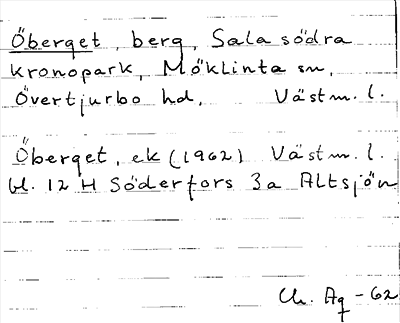 Öberget, berg, Sala södra
kronopark, Möklinta sn,
Övertjurbo hd, Västm. l.
Öberget, ek (1962) Västm. l.
bl. 12 H Söderfors 3a Altsjön
Ag -62